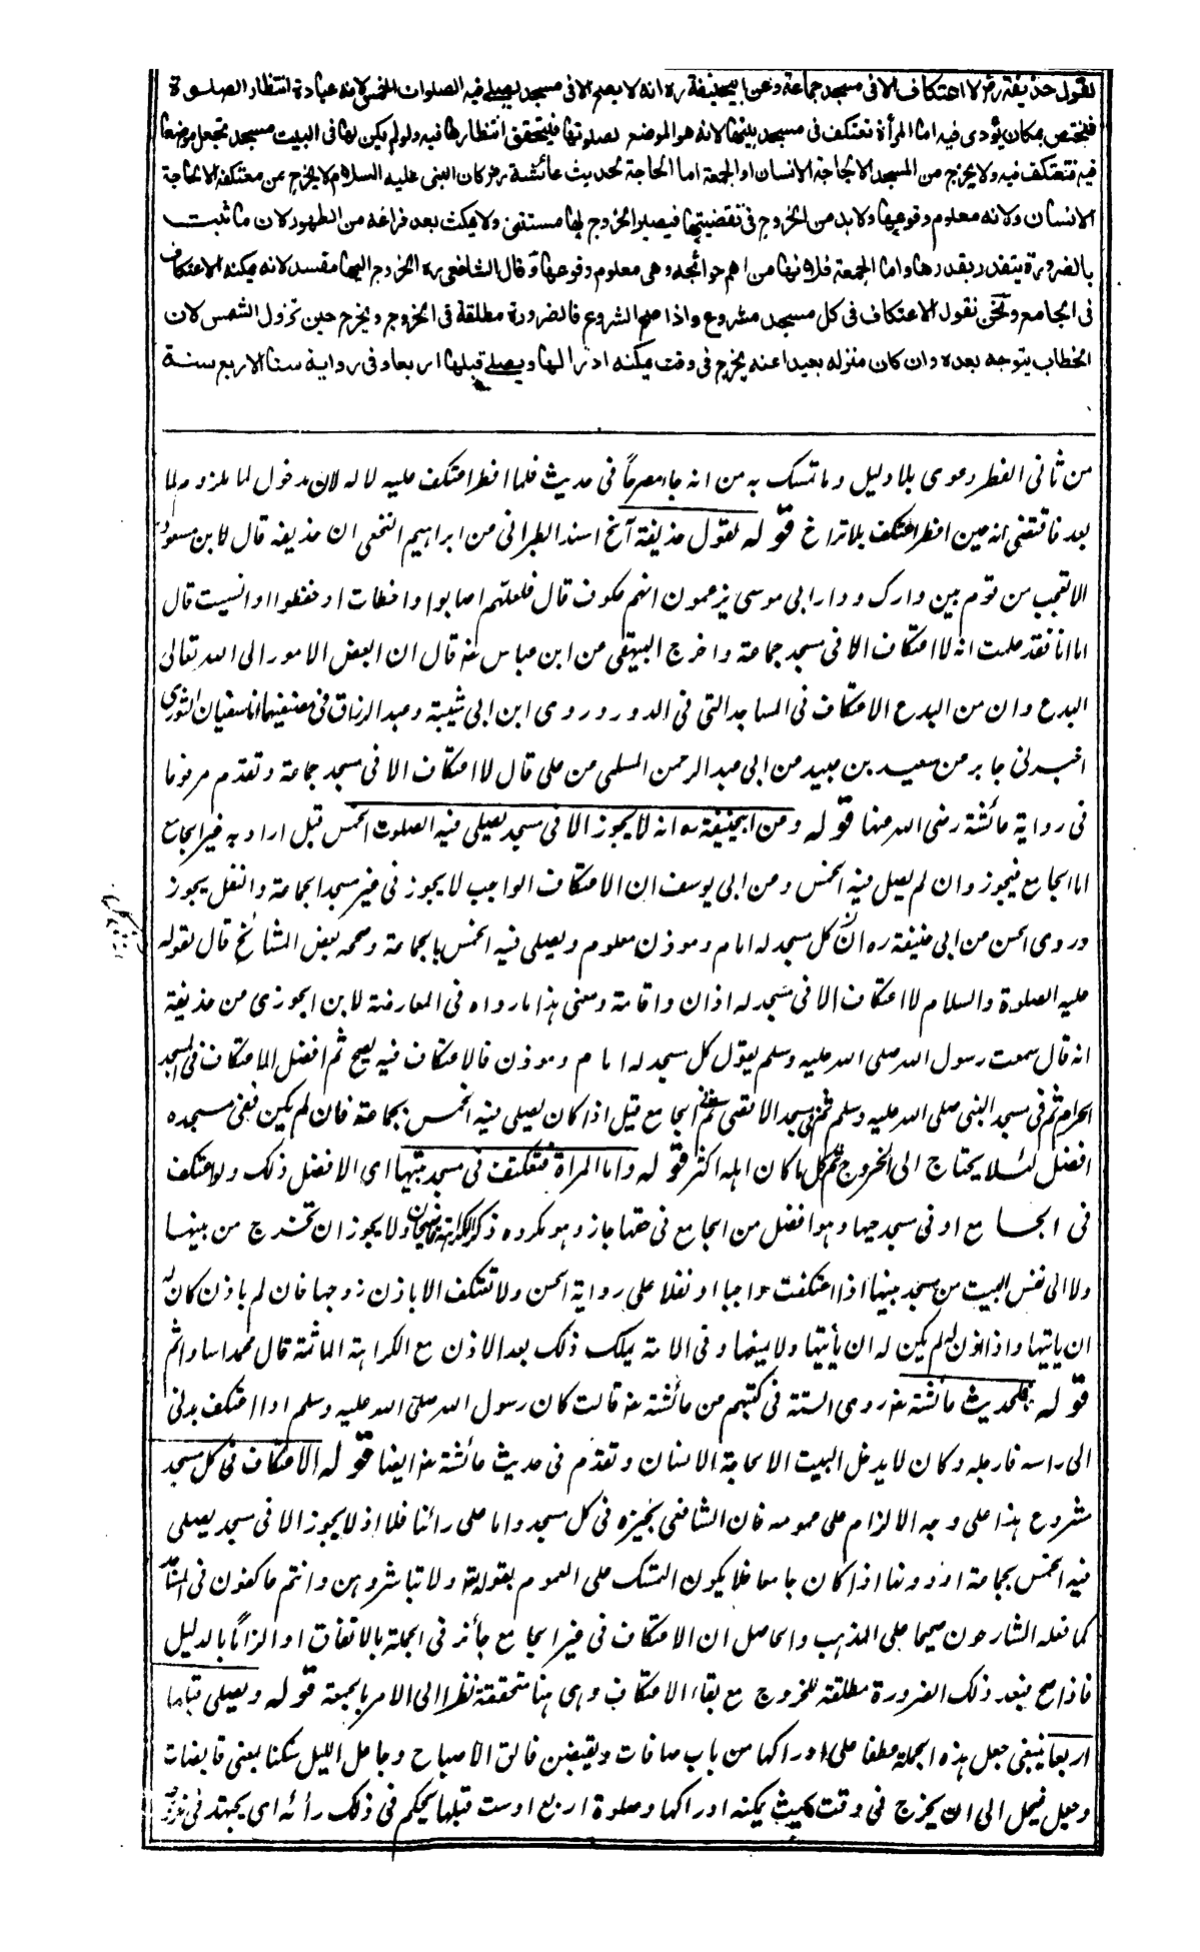 لقول حذيفة رض لا اعتكاف الا في مسجد جماعة وعن ابيحنيفة ره انه لا يصح الا في مسجد يصلى فيه الصلوات الخمس لانه عبادة انتظار الصلوة
فيختص بمكان يؤدى فيه اما المرأة تعتكف في مسجد بيتها لانه هو الموضع لصلوتها فيتحقق انتظارها فيه ولو لم يكن لها في البيت مسجد تجعل موضعا
فيه فتعتكف فيه ولا يخرج من المسجد الا لحاجة الانسان او الجمعة اما الحاجة لحديث عائشة رض كان النبي عليه السلام لا يخرج من معتكفه الا لحاجة
الانسان ولانه معلوم وقوعها ولا بد من الخروج في تقضيتها فيصير الخروج لها مستثنى ولا يمكث بعد فراغه من الطهور لان ما ثبت
بالضرورة يتقدر بقدرها واما الجمعة فلانها من اهم حوائجه وهي معلوم وقوعها وقال الشافعي ره الخروج اليها مفسد لانه يمكنه الاعتكاف
في الجامع ونحن نقول الاعتكاف في كل مسجد مشروع واذا صح الشروع فالضرورة مطلقة في الخروج ويخرج حين تزول الشمس لان
الخطاب يتوجه بعده وان كان منزله بعيدا عنه يخرج في وقت يمكنه ادراكها ويصلي قبلها اربعا وفي رواية ستا الاربع سنة
من ثاني الفطر دعوى بلا دليل وما تمسك به من انه جاء مصرحا في حديث فلما افطر اعتكف عليه لا له لان مدخول لما ملزوم لما
بعد فاقتضى انه حين افطر اعتكف بلا تراخ قوله لقول حذيفة آلخ اسند الطبراني عن ابراهيم النخعي ان حذيفة قال لابن مسعود
الا تعجب من قوم بين دارك ودار ابي موسى يزعمون انهم عكوف قال فلعلهم اصابوا واخطات او حفظوا وانسيت قال
اما انا فقد علمت انه لا اعتكاف الا في مسجد جماعة واخرج البيهقي عن ابن عباس رض قال ان ابغض الامور الى الله تعالى
البدع وان من البدع الاعتكاف في المساجد التي في الدور وروى ابن ابي شيبة وعبد الرزاق في مصنفيهما انا سفيان الثوري
اخبرني جابر عن سعيد بن عبيد عن ابي عبد الرحمن السلمي عن علي قال لا اعتكاف الا في مسجد جماعة وتقدم مرفوعا
في رواية عائشة رضى الله عنها قوله وعن ابيحنيفة ره انه لا يجوز الا في مسجد يصلى فيه الصلوت الخمس قيل اراد به غير الجامع
اما الجامع فيجوز وان لم يصل فيه الخمس وعن ابي يوسف ان الاعتكاف الواجب لا يجوز في غير مسجد الجماعة والنفل يجوز
وروى الحسن عن ابي حنيفة ره ان كل مسجد له امام وموذن معلوم ويصلى فيه الخمس بالجماعة وصححه بعض المشائخ قال لقوله
عليه الصلوة والسلام لا اعتكاف الا في مسجد له اذان واقامة ومعنى هذا ما رواه في المعارضة لابن الجوزي عن حذيفة
انه قال سمعت رسول الله صلى الله عليه وسلم يقول كل مسجد له امام وموذن فالاعتكاف فيه يصح ثم افضل الاعتكاف في المسجد
الحرام ثم في مسجد النبي صلى الله عليه وسلم ثم في مسجد الاقصى ثم الجامع قيل اذا كان يصلى فيه الخمس بجماعة فان لم يكن ففي مسجده
افضل لئلا يحتاج الى الخروج ثم كل ما كان اهله اكثر قوله واما المراة فتعتكف في مسجد بيتها اى الافضل ذلك ولو اعتكف
في الجامع او في مسجد حيها وهو افضل من الجامع في حقها جاز وهو مكروه ذكر الكراهة قاضيخان ولا يجوز ان تخرج من بيتها
ولا الى نفس البيت من مسجد بيتها اذا اعتكفت واجبا او نفلا على رواية الحسن ولا تعتكف الا باذن زوجها فان لم ياذن كان له
ان ياتيها واذا اذن لم يكن له ان يأتيها ولا يمنعها وفي الامة يملك ذلك بعد الاذن مع الكراهة قال محمد اساء واثم
قوله فلحديث عائشة رض روى الستة في كتبهم عن عائشة رض قالت كان رسول الله صلى الله عليه وسلم اذا اعتكف يدنى
الى راسه فارجله وكان لا يدخل البيت الا لحاجة الانسان وتقدم في حديث عائشة رض ايضا قوله الاعتكاف في كل مسجد
مشروع هذا على وجه الالزام على عمومه فان الشافعي يجيزه في كل مسجد واما على رائنا فلا اذ لا يجوز الا في مسجد يصلى
فيه الخمس بجماعة او دونها اذا كان جامعا فلا يكون التمسك على العموم بقوله تع ولا تباشروهن وانتم عاكفون في المساجد
كما فعله الشارحون صحيحا على المذهب والحاصل ان الاعتكاف في غير الجامع جائز في الجملة بالاتفاق او الزاما بالدليل
فاذا صح فبعد ذلك الضرورة مطلقة للخروج مع بقاء الاعتكاف وهى هنا متحققة نظرا الى الامر بالجمعة قوله ويصلى قبلها
اربعا ينبغى جعل هذه الجملة عطفا على ادراكها من باب صافات ويقبضن فالق الاصباح وجاعل الليل سكنا بمعنى قابضات
وجعل فيحل الى ان يخرج في وقت بحيث يمكنه ادراكها وصلوة اربع او ست قبلها يحكم في ذلك رأئه اى يجتهد في